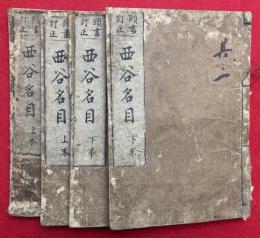 共二
頭書訂正 西谷名目 下本
頭書訂正 西谷名目 下本
頭書訂正 西谷名目 上末
頭書訂正 西谷名目 上本